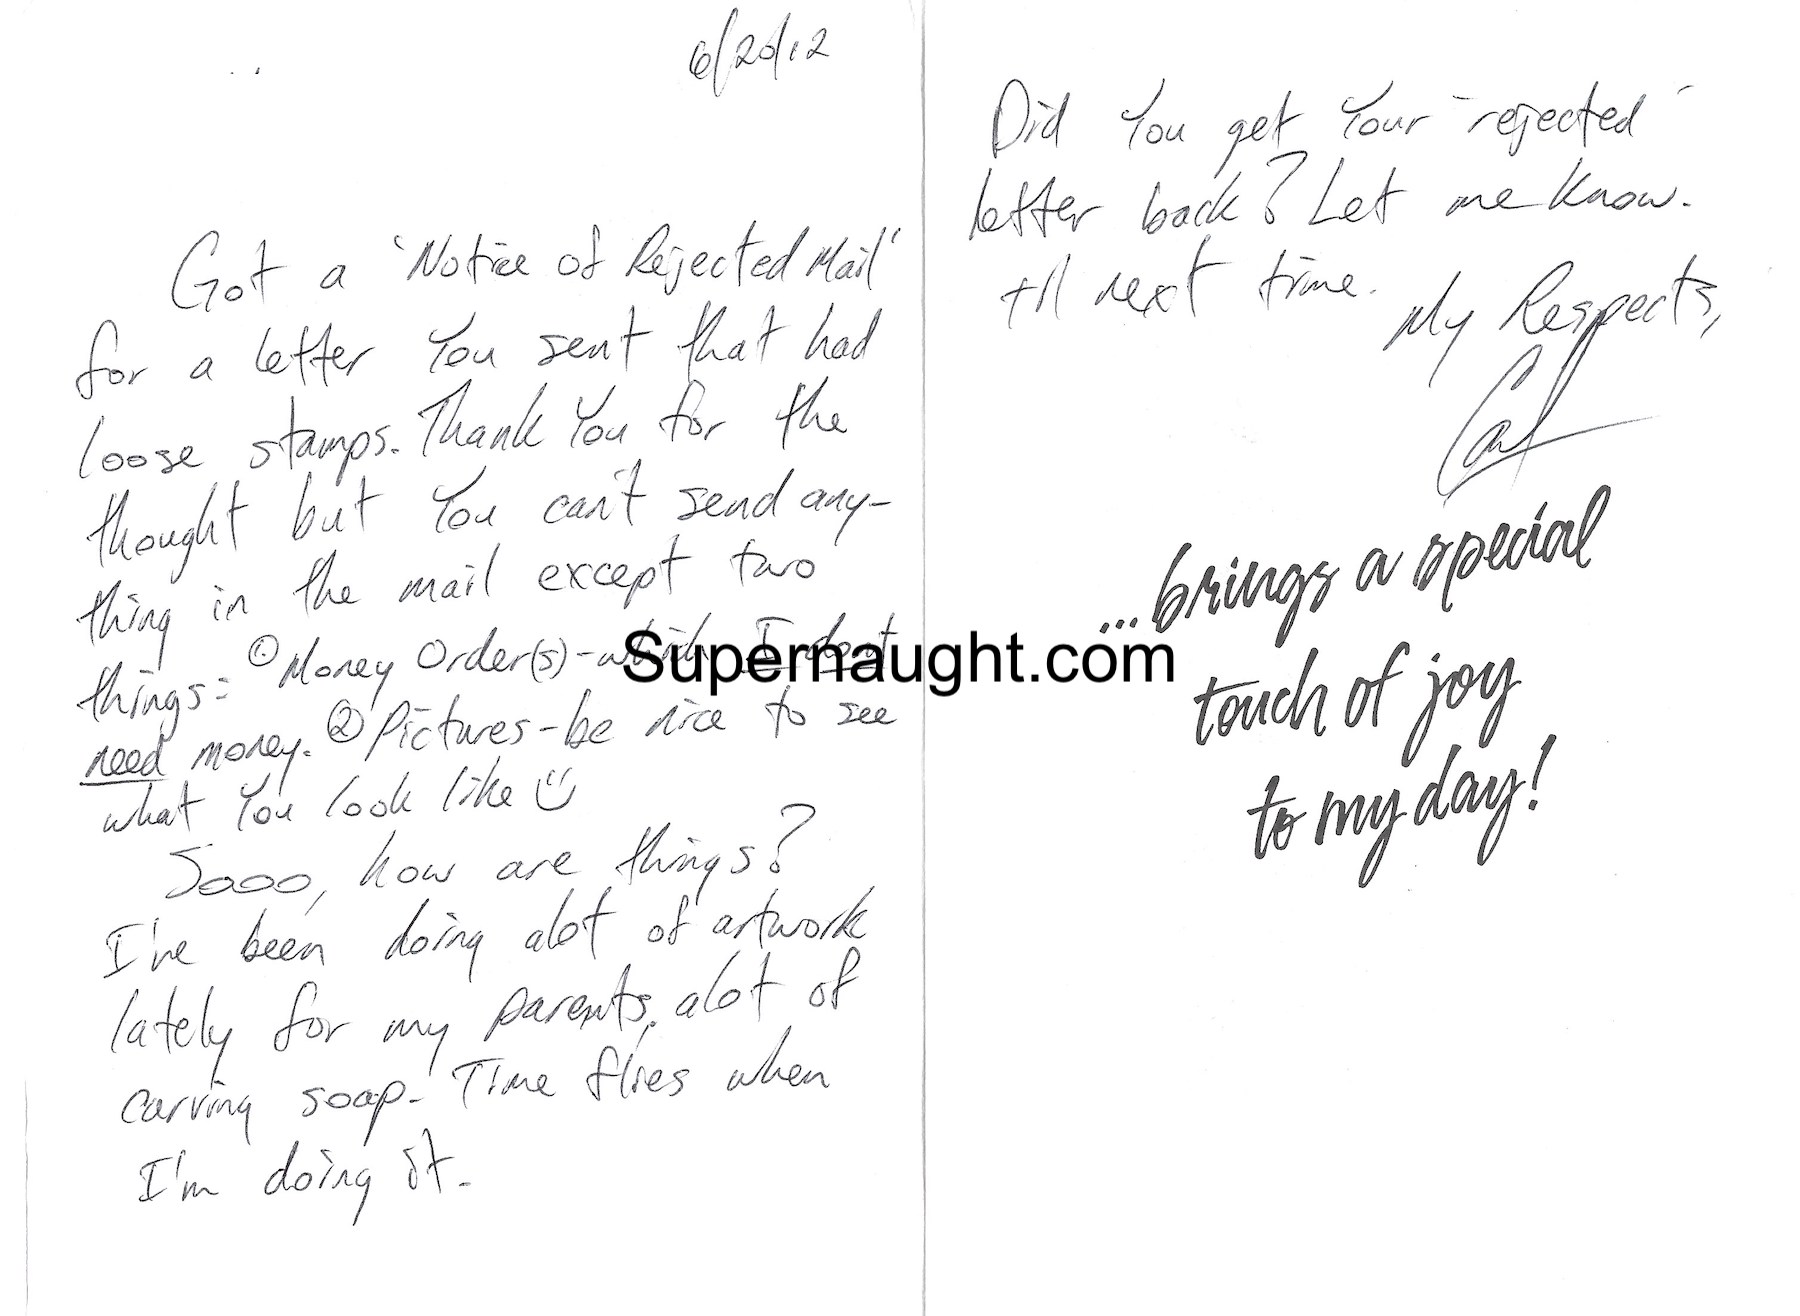 6/20/12
Got a 'Notice of Rejected Mail'
for a letter You sent that had
loose stamps. Thank You for the
thought but You can't send any-
thing in the mail except two
things: ① Money Order(s)-which I don't
need money. ② Pictures-be nice to see
what You look like
Sooo, how are things?
I've been doing alot of artwork
lately for my parents, alot of
carving soap. Time flies when
I'm doing it.
Did You get Your "rejected"
letter back? Let me know.
til next time.
My Respects,
Cal
...brings a special
touch of joy
to my day!
Supernaught.com